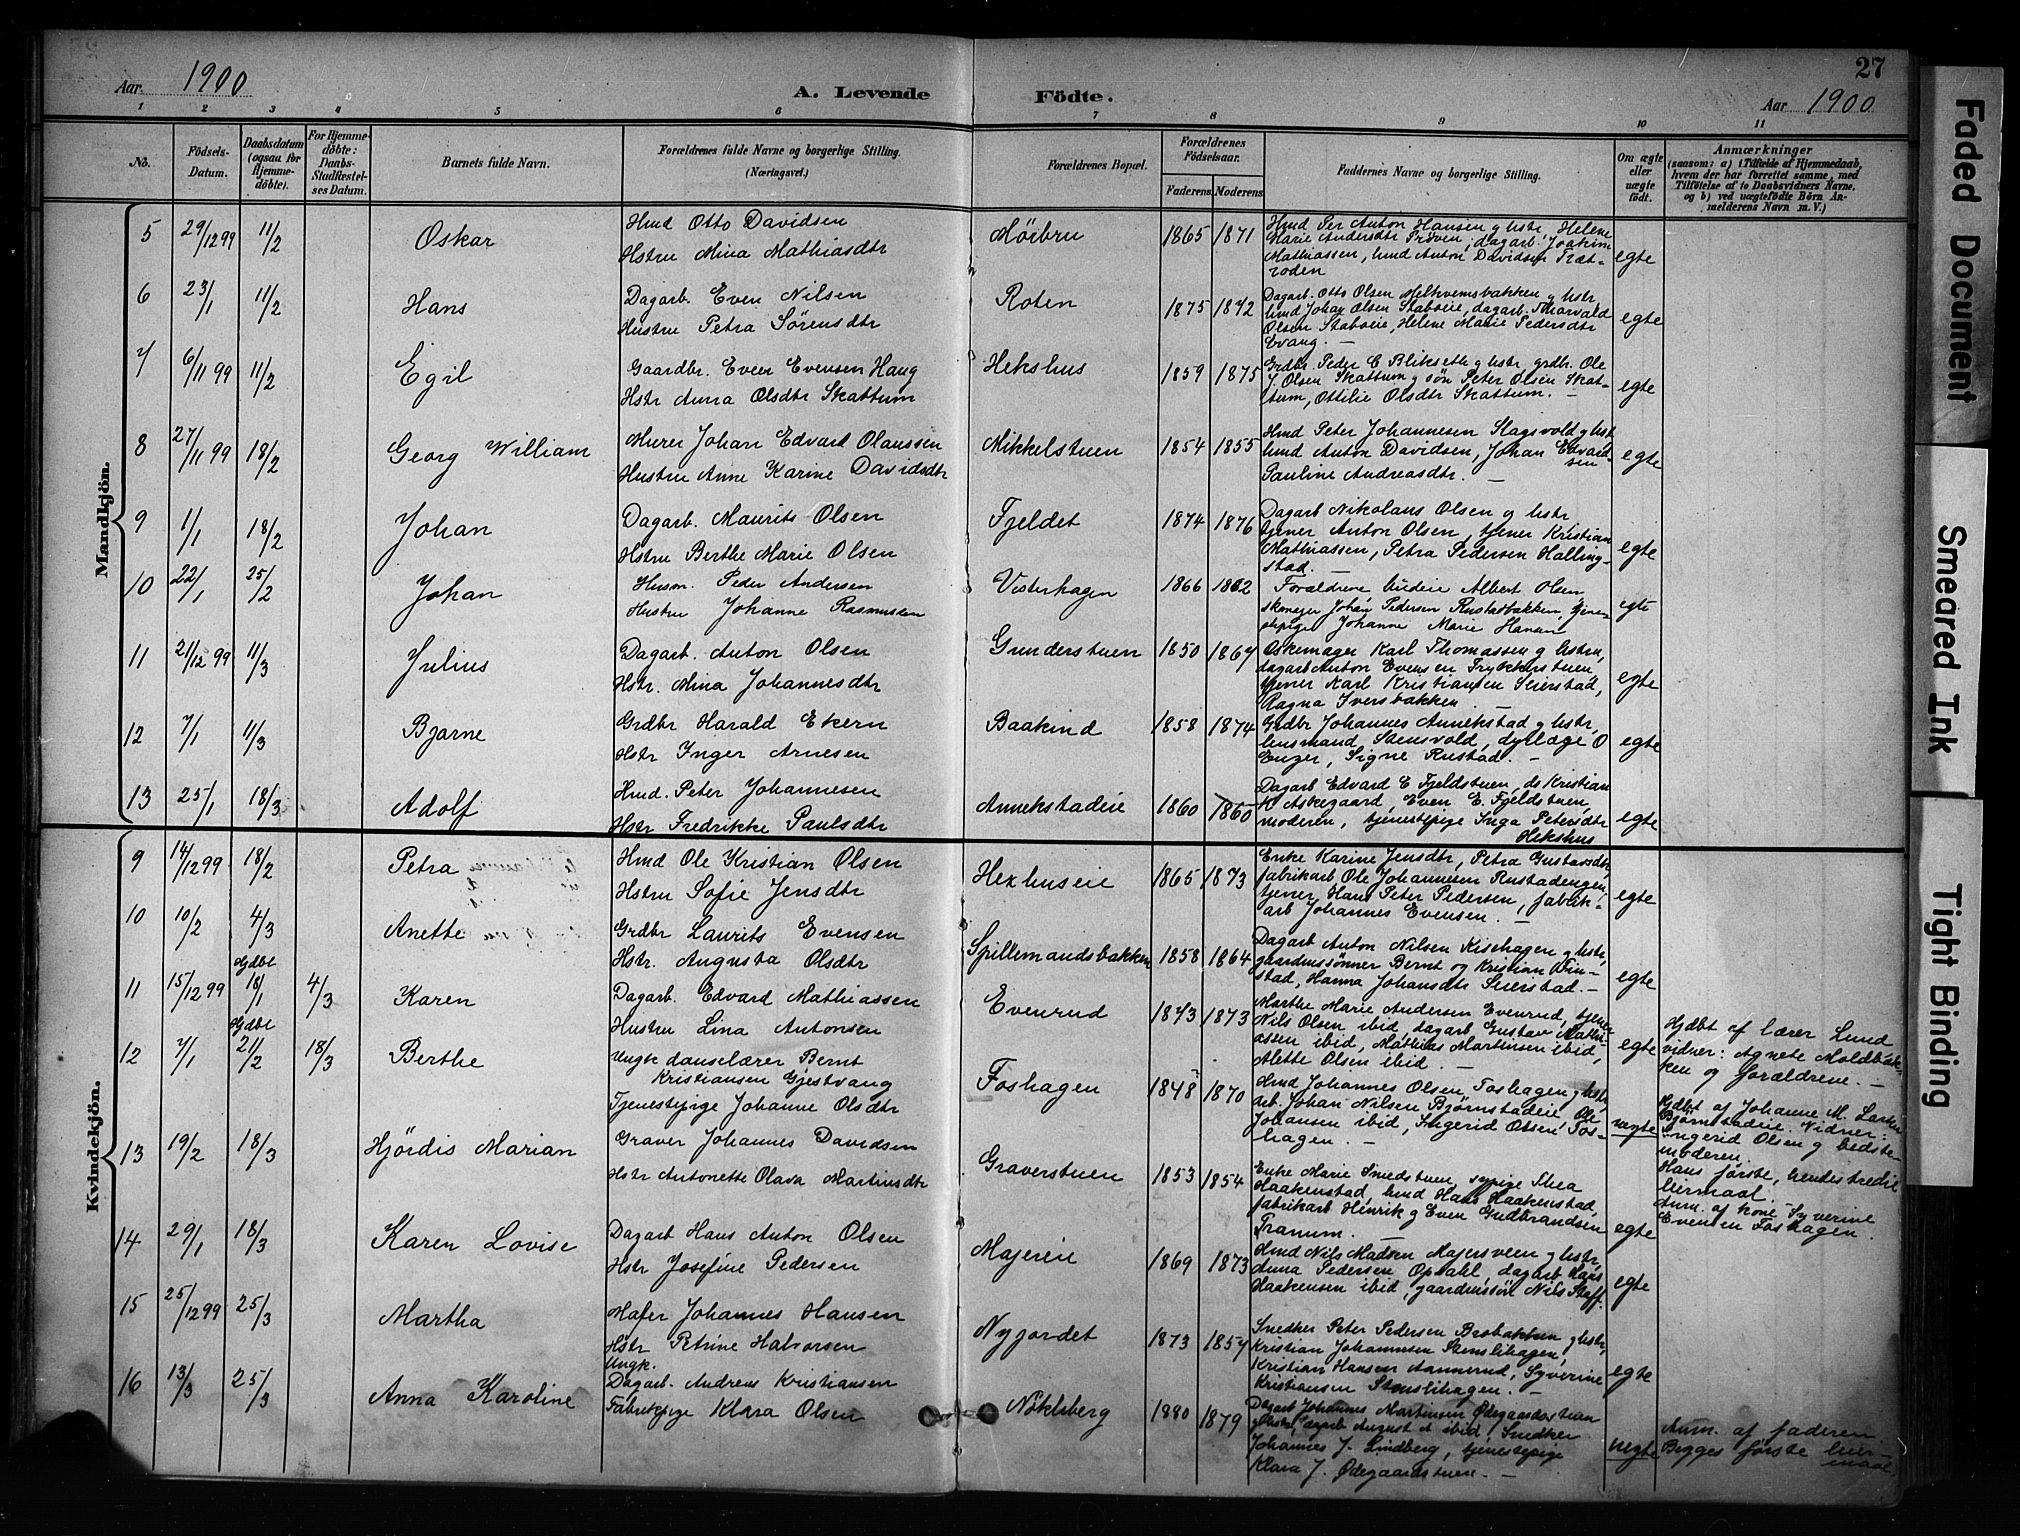 27
Aar 1900
A. Levende Födte.
Aar 1900
1 2 3 4 5 6 7 8 9 10 11
No.
Födsels-Datum.
Daabsdatum (ogsaa for Hjemme-döbte).
For Hjemme-döbte: Daabs-Stadfæstel-ses Datum.
Barnets fulde Navn.
Forældrenes fulde Navne og borgerlige Stilling. (Næringsvei.)
Forældrenes Bopæl.
Forældrenes Födselsaar.
Faderens. Moderens.
Faddernes Navne og borgerlige Stilling.
Om ægte eller uægte födt.
Anmærkninger
(saasom: a) i Tilfælde af Hjemmedaab,
hvem der har forrettet samme, med
Tilföielse af to Daabsvidners Navne,
og b) ved uægtefödte Börn An-
melderens Navn m. V.)
Mandkjön.
5 29/12 99 11/2 Oskar
Hmd Otto Davidsen
Hstru Mina Mathiasdtr
Mörbru 1865 1871
Hmd Per Anton Hansen g hstr, Helene
Marie Andersdtr Pröven, dagarb. Joakim
Mathiassen, hmd Anton Davidsen Træt-
roden
egte
6 23/1 11/2 Hans
Dagarb. Even Nilsen
Hustru Petra Sörensdtr
Roten 1875 1872
Dagarb. Otto Olsen Melkvemsbakken g hstr
hmd Johan Olsen Staboeie, dagarb. Thorvald
Olsen Staboeie, Helene Marie Pedersdtr
Evang. —
egte
7 6/11 99 11/2 Egil
Gaardbr. Even Evensen Haug
Hstr Anna Olsdtr Skattum
Hekshus 1859 1875
Grdbr. Peder C Blikseth g hstr, grdbr. Ole
J. Olsen Skattum g sön Peter Olsen Skat-
tum, Ottilie Olsdtr Skattum. —
egte
8 27/11 99 18/2 Georg William
Murer Johan Edvard Olaussen
Hustru Anne Karine Davidsdtr
Mikkelstuen 1854 1855
Hmd Peter Johannesen Slagsvold g hstr
hmd Anton Davidsen, Johan Edvard-
sen
Pauline Andreasdtr. —
egte
9 1/1 18/2 Johan
Dagarb. Maurits Olsen
Hstru Berthe Marie Olsen
Fjeldet 1874 1876
Dagarb Nikolaus Olsen g hstr
tjener Anton Olsen, tjener Kristian
Mathiassen, Petra Pedersen Halling-
stad. —
egte
10 22/1 25/2 Johan
Husm. Peder Andersen
Hustru Johanne Rasmussen
Vesterhagen 1866 1862
Forældrene, budeie Albert Olsen
skomager Johan Pedersen Rustadbakken, tjene-
stepige Johanne Marie Hansen
egte
11 21/12 99 11/3 Julius
Dagarb. Anton Olsen
Hstr. Mina Johannesdtr
Gunderstuen 1850 1867
Skomager Karl Thomassen g hstru,
dagarb Anton Evensen Trykkerstuen
tjener Karl Kristiansen Seierstad,
Ragna Iversbakken
egte
12 7/1 11/3 Bjarne
Grdbr Harald Ekern
Hstr Inger Arnesen
Baakind 1858 1874
Grdbr Johannes Annekstad g hstr,
lensmand Stensvold, dyrlæge O
Enger, Signe Rustad. —
egte
13 25/1 18/3 Adolf
Hmd. Peter Johannesen
Hstr Fredrikke Paulsdtr
Annekstadeie 1860 1860
Dagarb Edvard E Fjeldstuen, ds Kristian
K Askegaard, Even E. Fjeldstuen,
moderen, tjenestepige Inga Petersdtr
Hekshus
egte
Kvindekjön.
9 14/12 99 18/2 Petra
Hmd Ole Kristian Olsen
Hstru Sofie Jensdtr
Hexhuseie 1865 1873
Enke Karine Jensdtr, Petra Gustavsdtr
fabrikarb Ole Johannesen Rustadengen,
tjener Hans Peter Pedersen, fabrik-
arb Johannes Evensen. —
egte
10 10/2 4/3 Anette
Grdbr Laurits Evensen
Hstr. Augusta Olsdtr
Spillemandsbakken 1858 1864
Dagarb Anton Nilsen Kisehagen g hstr,
gaardmssönner Bernt og Kristian Fin-
stad, Hanna Johansdtr Seierstad. —
egte
11 15/12 99 Hjdbt 18/1 4/3 Karen
Dagarb. Edvard Mathiassen
Hustru Lina Antonsen
Evenrud 1873 1873
Marthe Marie Andersen Evenrud, tjener
Nils Olsen ibid, dagarb Gustav Mathi-
assen ibid, Mathias Martinsen ibid,
Alette Olsen ibid. —
egte
Hjdbt af lærer Lund
vidner: Agnete Moldbak-
ken og forældrene. —
12 7/1 Hjdbt 21/2 18/3 Berthe
Ungk danselærer Bernt
Kristiansen Gjestvang
Tjenestepige Johanne Olsdtr
Foshagen 1848 1870
Hmd Johannes Olsen Foshagen g hstr,
arb. Johan Nilsen Bjørnstadeie, Ole
Johansen ibid, Ingerid Olsen Fos-
hagen. —
uegte
Hjdbt af Johanne M. Larsen
Bjørnstadeie. Vidner:
Ingerid Olsen g bedste-
moderen.
Hans første, hendes tredie
leiermaal.
Anm. af kone Syverine
Evensen Foshagen.
13 19/2 18/3 Hjördis Marian
Graver Johannes Davidsen
Hstr Antonette Olava Martinsdtr
Graverstuen 1853 1854
Enke Marie Smedstuen, sypige Thea
Haakenstad, hmd Hans Haakenstad,
fabrikarb Henrik g Even Gudbrandsen
Tranum. —
egte
14 29/1 18/3 Karen Lovise
Dagarb Hans Anton Olsen
Hstr Josefine Pedersen
Majereie 1869 1873
Hmd Nils Madsen Majersveen g hstr,
Anna Pedersen Opdahl, dagarb. Hans
Haakensen ibid, gaardmssön Nils Skaff.
egte
15 25/12 99 25/3 Martha
Maler Johannes Hansen
Hstr Petrine Halvorsen
Nyjordet 1873 1857
Snedker Peter Pedersen Brobakken g hstr,
Kristian Johannesen Stenslihagen,
Kristian Hansen Aannerud, Syverine
Kristiansen Stenslihagen. —
egte
16 13/3 25/3 Anna Karoline
Ungk.
Dagarb. Andreas Kristiansen
Fabrikpige Klara Olsen
Nöklsberg 1880 1879
Dagarb Johannes Martinsen Ødegaardsstuen
g hstr, dagarb August A ibid, Snedker
Johannes J. Lindberg, tjenestepige
Klara J. Ødegaardstuen. —
uegte
Anm. af faderen
Begges første leier-
maal.
Faded Document
Smeared Ink
Tight Binding